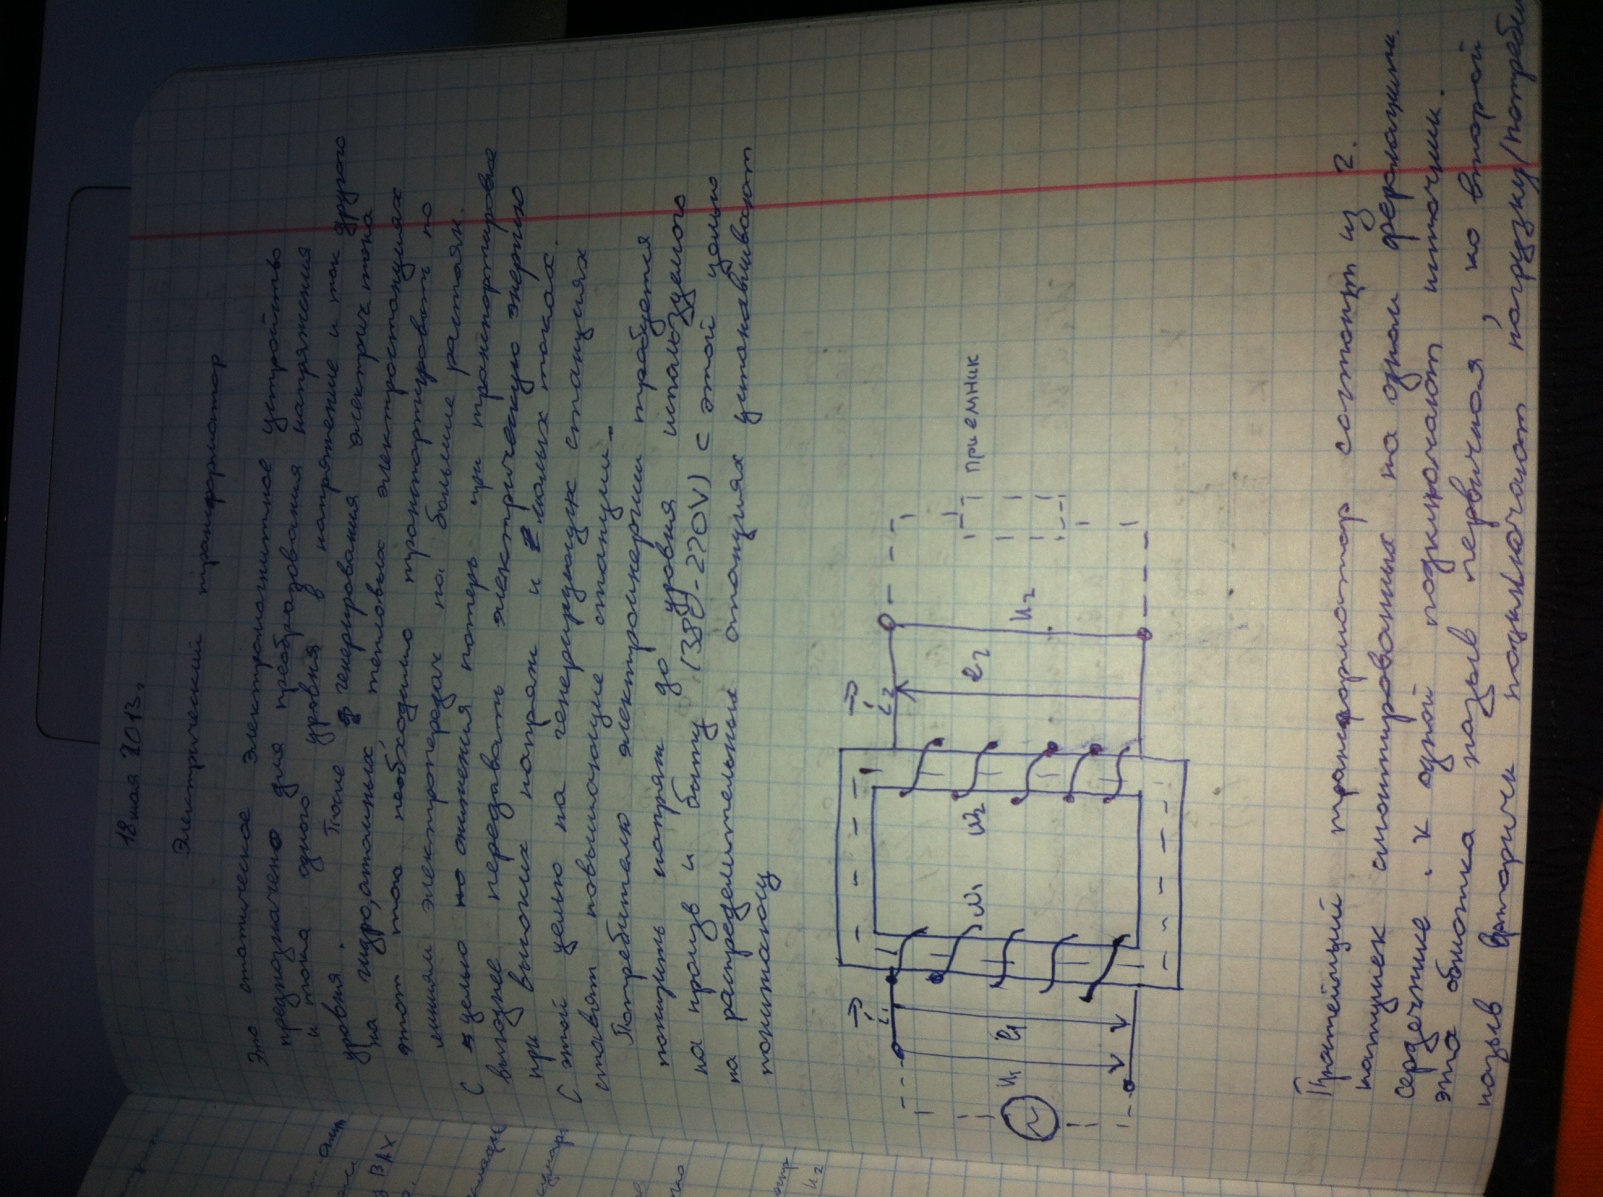 18 мая 2013г
Электрический трансформатор
Это статическое электромагнитное устройство
предназначено для преобразования напряжения
и тока одного уровня в напряжение и ток другого
уровня. После генерирования электрич тока
на гидро, атомных тепловых электростанциях
этот ток необходимо транспортировать по
линиям электропередач на большие растоян.
С целью снижения потерь при транспортировке
выгоднее передавать электрическую энергию
при высоких напряж и малых токах.
С этой целью на генерирующих станциях
ставят повышающие станции.
Потребителю электроэнергии требуется
понизить напряж до уровня используемого
на произв и быту (380-220V) с этой целью
на распределительных станциях устанавливают
понижающ
i₁
i₂
U₁
e₁
W₁
W₂
e₂
U₂
приемник
~
Простейший трансформатор состоит из 2.
катушек смонтированных на одном ферромагнитн.
сердечнике. К одной подключают источник.
эта обмотка назыв первичная, ко второй
назыв вторичн подключают нагрузку/потребит
ВАХ
U₂